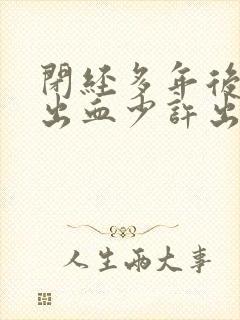 閉經多年後
出血少許出
人生兩大事